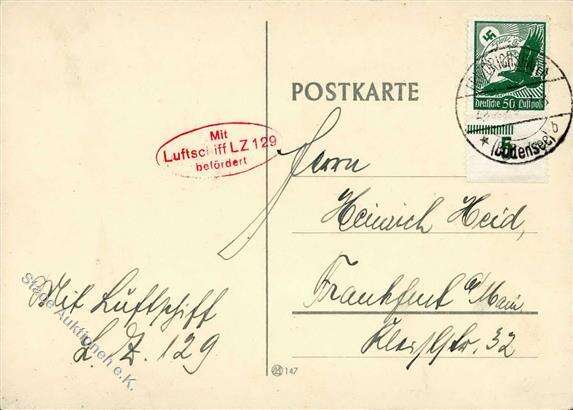 POSTKARTE
Deutsche 50 Luftpost
(Bodensee)
b
Mit
Luftschiff LZ 129
befördert
Herrn
Heinrich Heid,
Frankfurt a/Main
32
Mit Luftschiff
L. Z. 129
Stade Auktionen e.K.
147